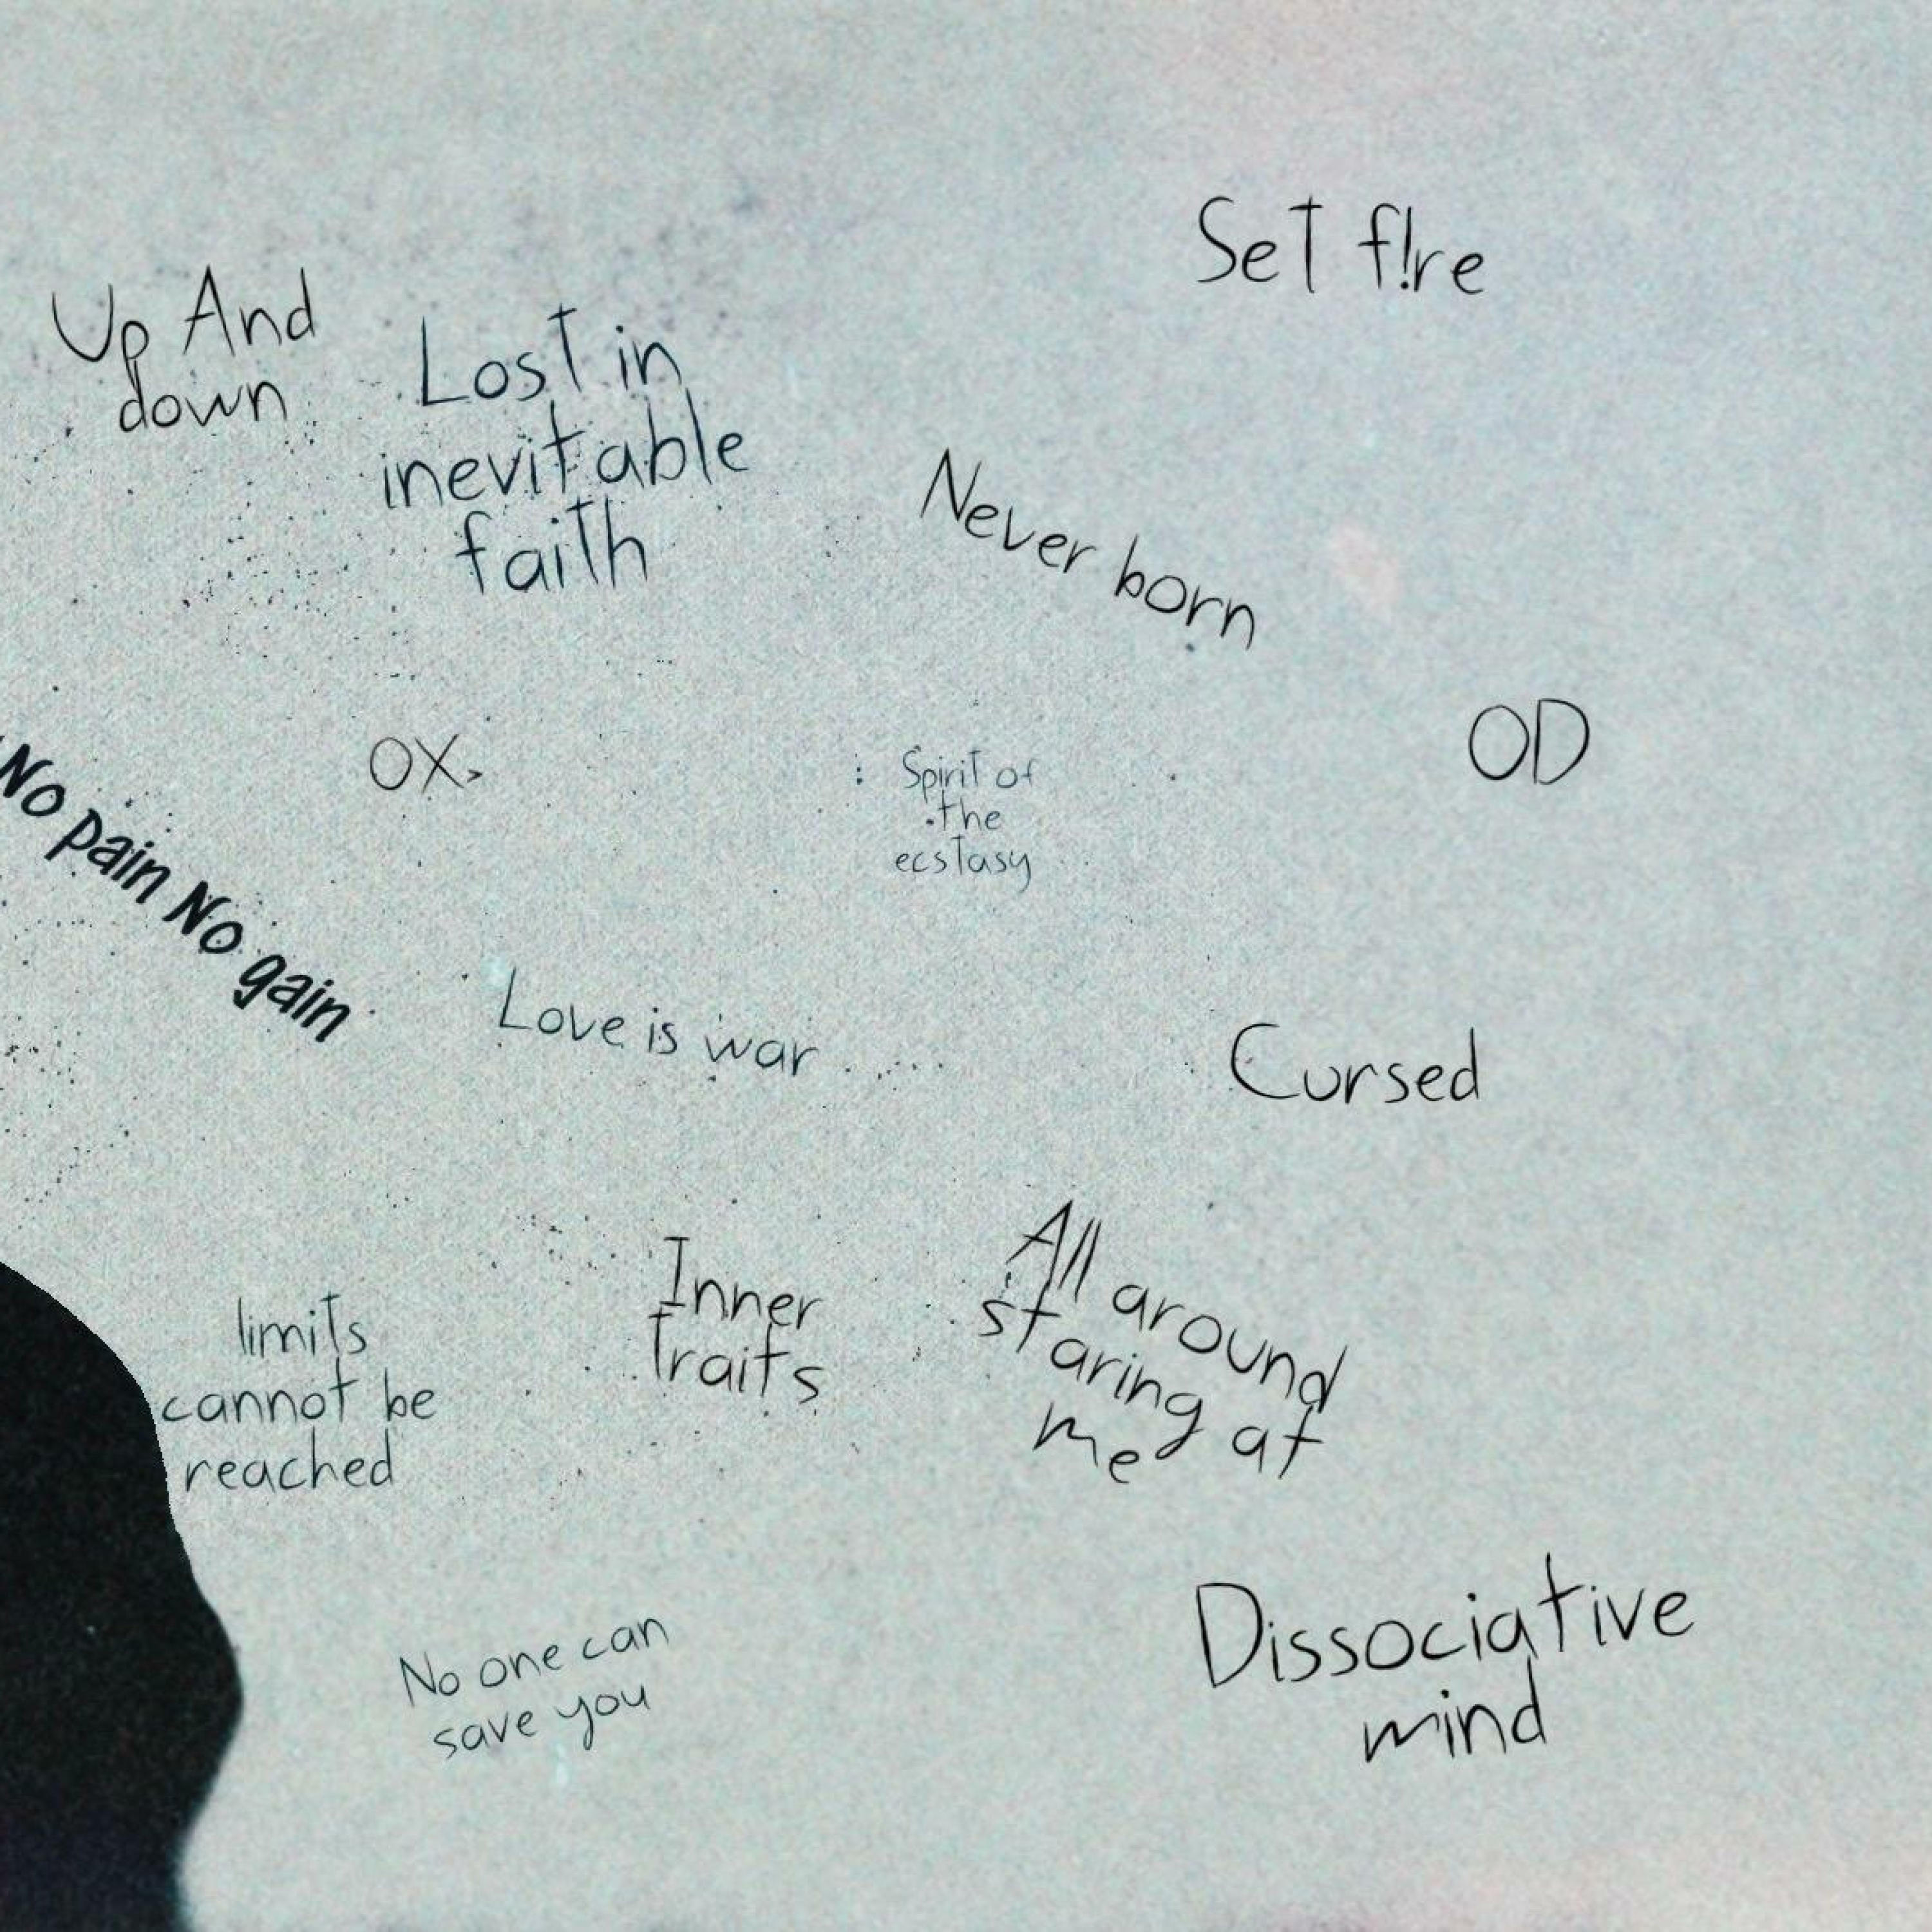 Set f!re
Up And
down
Lost in
inevitable
faith
Never born
OX
Spirit of
the
ecstasy
OD
No pain No gain
Love is war
Cursed
All around
staring at
me
Inner
Traits
limits
cannot be
reached
Dissociative
mind
No one can
save you